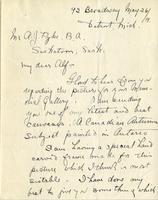 92 Broadway May 24/
Detroit Mich
Mr A.J. Pyke B.A.
Saskatoon, Sask.
My dear Alf:—
Glad to hear from you
regarding the picture for your
Gallery. I am sending
you one of my latest and best
canvases. A Canadian Autumn
subject painted in Ontario
I am having a special hand
carved frame made for this
picture which I think is most
suitable. I have done my
best to give you something which